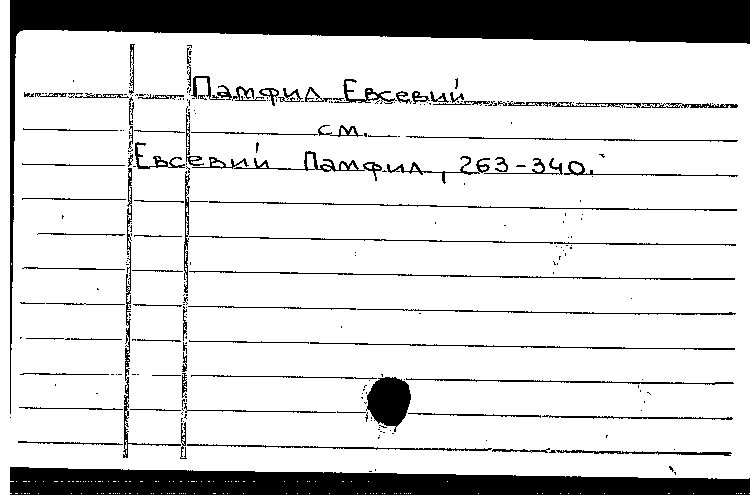 Памфил Евсевий
см.
Евсевий Памфил, 263-340.